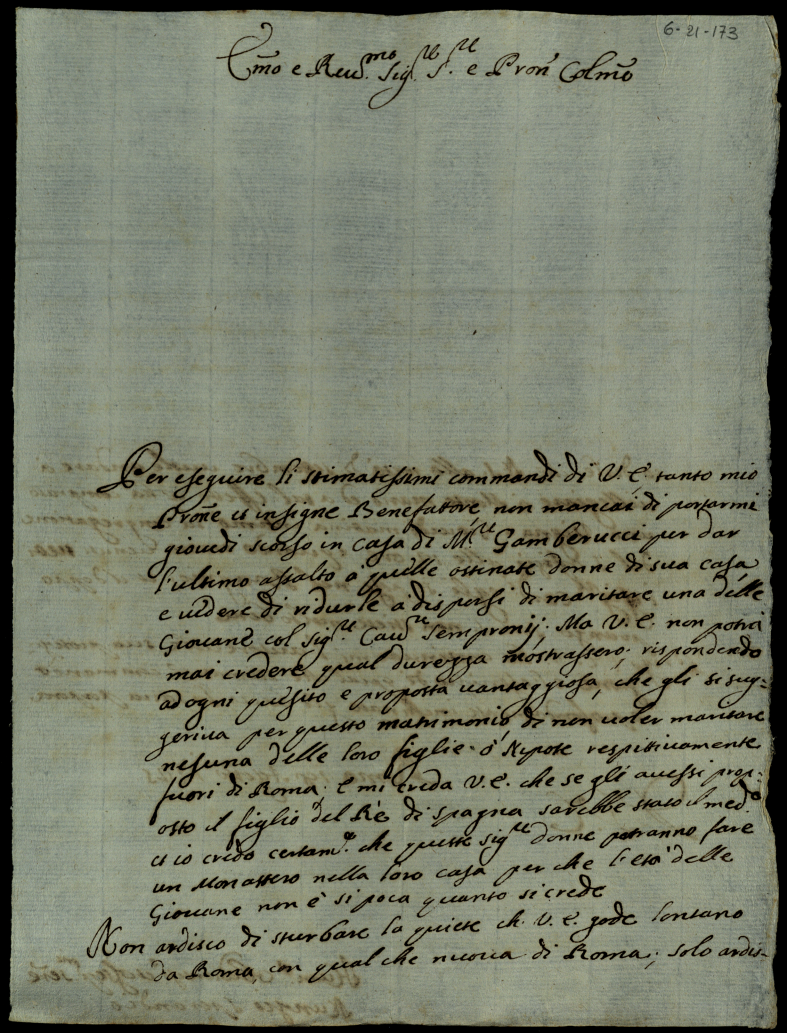 6-21-173
Emo e Reu.mo Sig.re S.re e Pron Colmo
Per eseguire li stimatissimi commandi di V. E. tanto mio
Prone et insigne Benefatore non mancai di portarmi
giouedi scorso in casa di M.re Gamberucci per dar
l'ultimo assalto à quelle ostinate donne di sua casa
e uedere di ridurle à disporsi di maritare una delle
Giouane col sig.re Cau.re Sempronij. Ma V. E. non potrà
mai credere qual durezza mostrassero; rispondendo
ad ogni quesito e proposta uantaggiosa, che gli si sug-
geriua per questo matrimonio di non uoler maritare
nesuna delle loro figlie ò Nipote respitiuamente
fuori di Roma. e mi creda V. E. che se gli auessi prop-
osto il figlio del Rè di Spagna sarebbe stato il med.o
et io credo certam.e che queste sig.re donne potranno fare
un Monastero nella loro casa per che l'età delle
Giouane non è si poca quanto si crede
Non ardisco di sturbare la quiete ch. V. E. gode lontano
da Roma, con qual che nuoua di Roma; solo ardis-